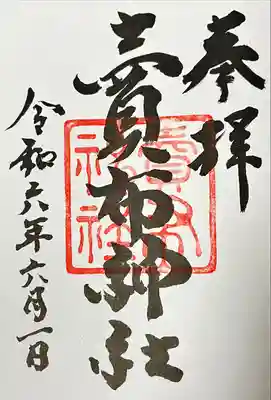 奉拝
賣布神社
令和六年六月一日
賣布神社